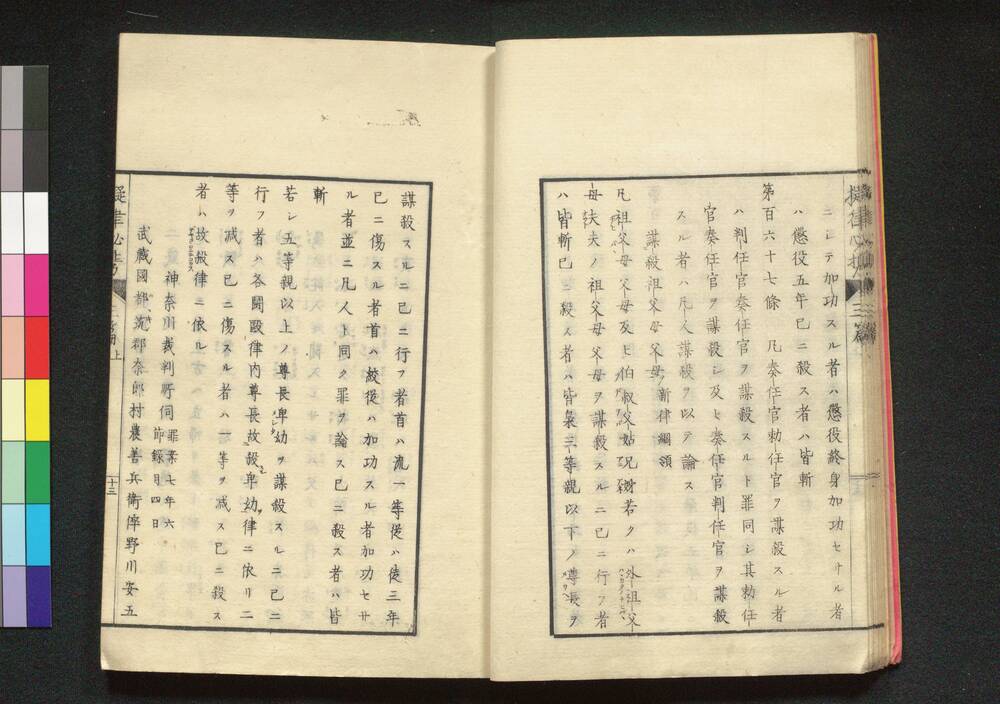 ニシテ加功スル者ハ懲役終身加功セサル者
ハ懲役五年已ニ殺ス者ハ皆斬
第百六十七條 凡奏任官勅任官ヲ謀殺スル者
ハ判任官奏任官ヲ謀殺スルト罪同シ其勅任
官奏任官ヲ謀殺シ及ヒ奏任官判任官ヲ謀殺
スル者ハ凡人謀殺ヲ以テ論ス
新律綱領
謀殺祖父母父母
凡祖父母父母及ヒ伯叔父姑兄姉若クハ外祖父
母夫夫ノ祖父母父母ヲ謀殺スルニ已ニ行フ者
ハ皆斬已ニ殺ス者ハ皆梟三等親以下ノ尊長ヲ
謀殺スルニ已ニ行フ者首ハ流一等從ハ徒三年
已ニ傷スル者首ハ絞從ハ加功スル者加功セサ
ル者並ニ凡人ト同ク罪ヲ論ス已ニ殺ス者ハ皆
斬
若シ五等親以上ノ尊長卑幼ヲ謀殺スルニ已ニ
行フ者ハ各鬪毆律内尊長故殺卑幼律ニ依リ二
等ヲ减ス已ニ傷スル者ハ一等ヲ减ス已ニ殺ス
者ハ故殺律ニ依ル
神奈川裁判所伺 罪案 七年六
節録 月四日
武藏國都筑郡奈良村農善兵衛倅野川安五
三篇上
十三